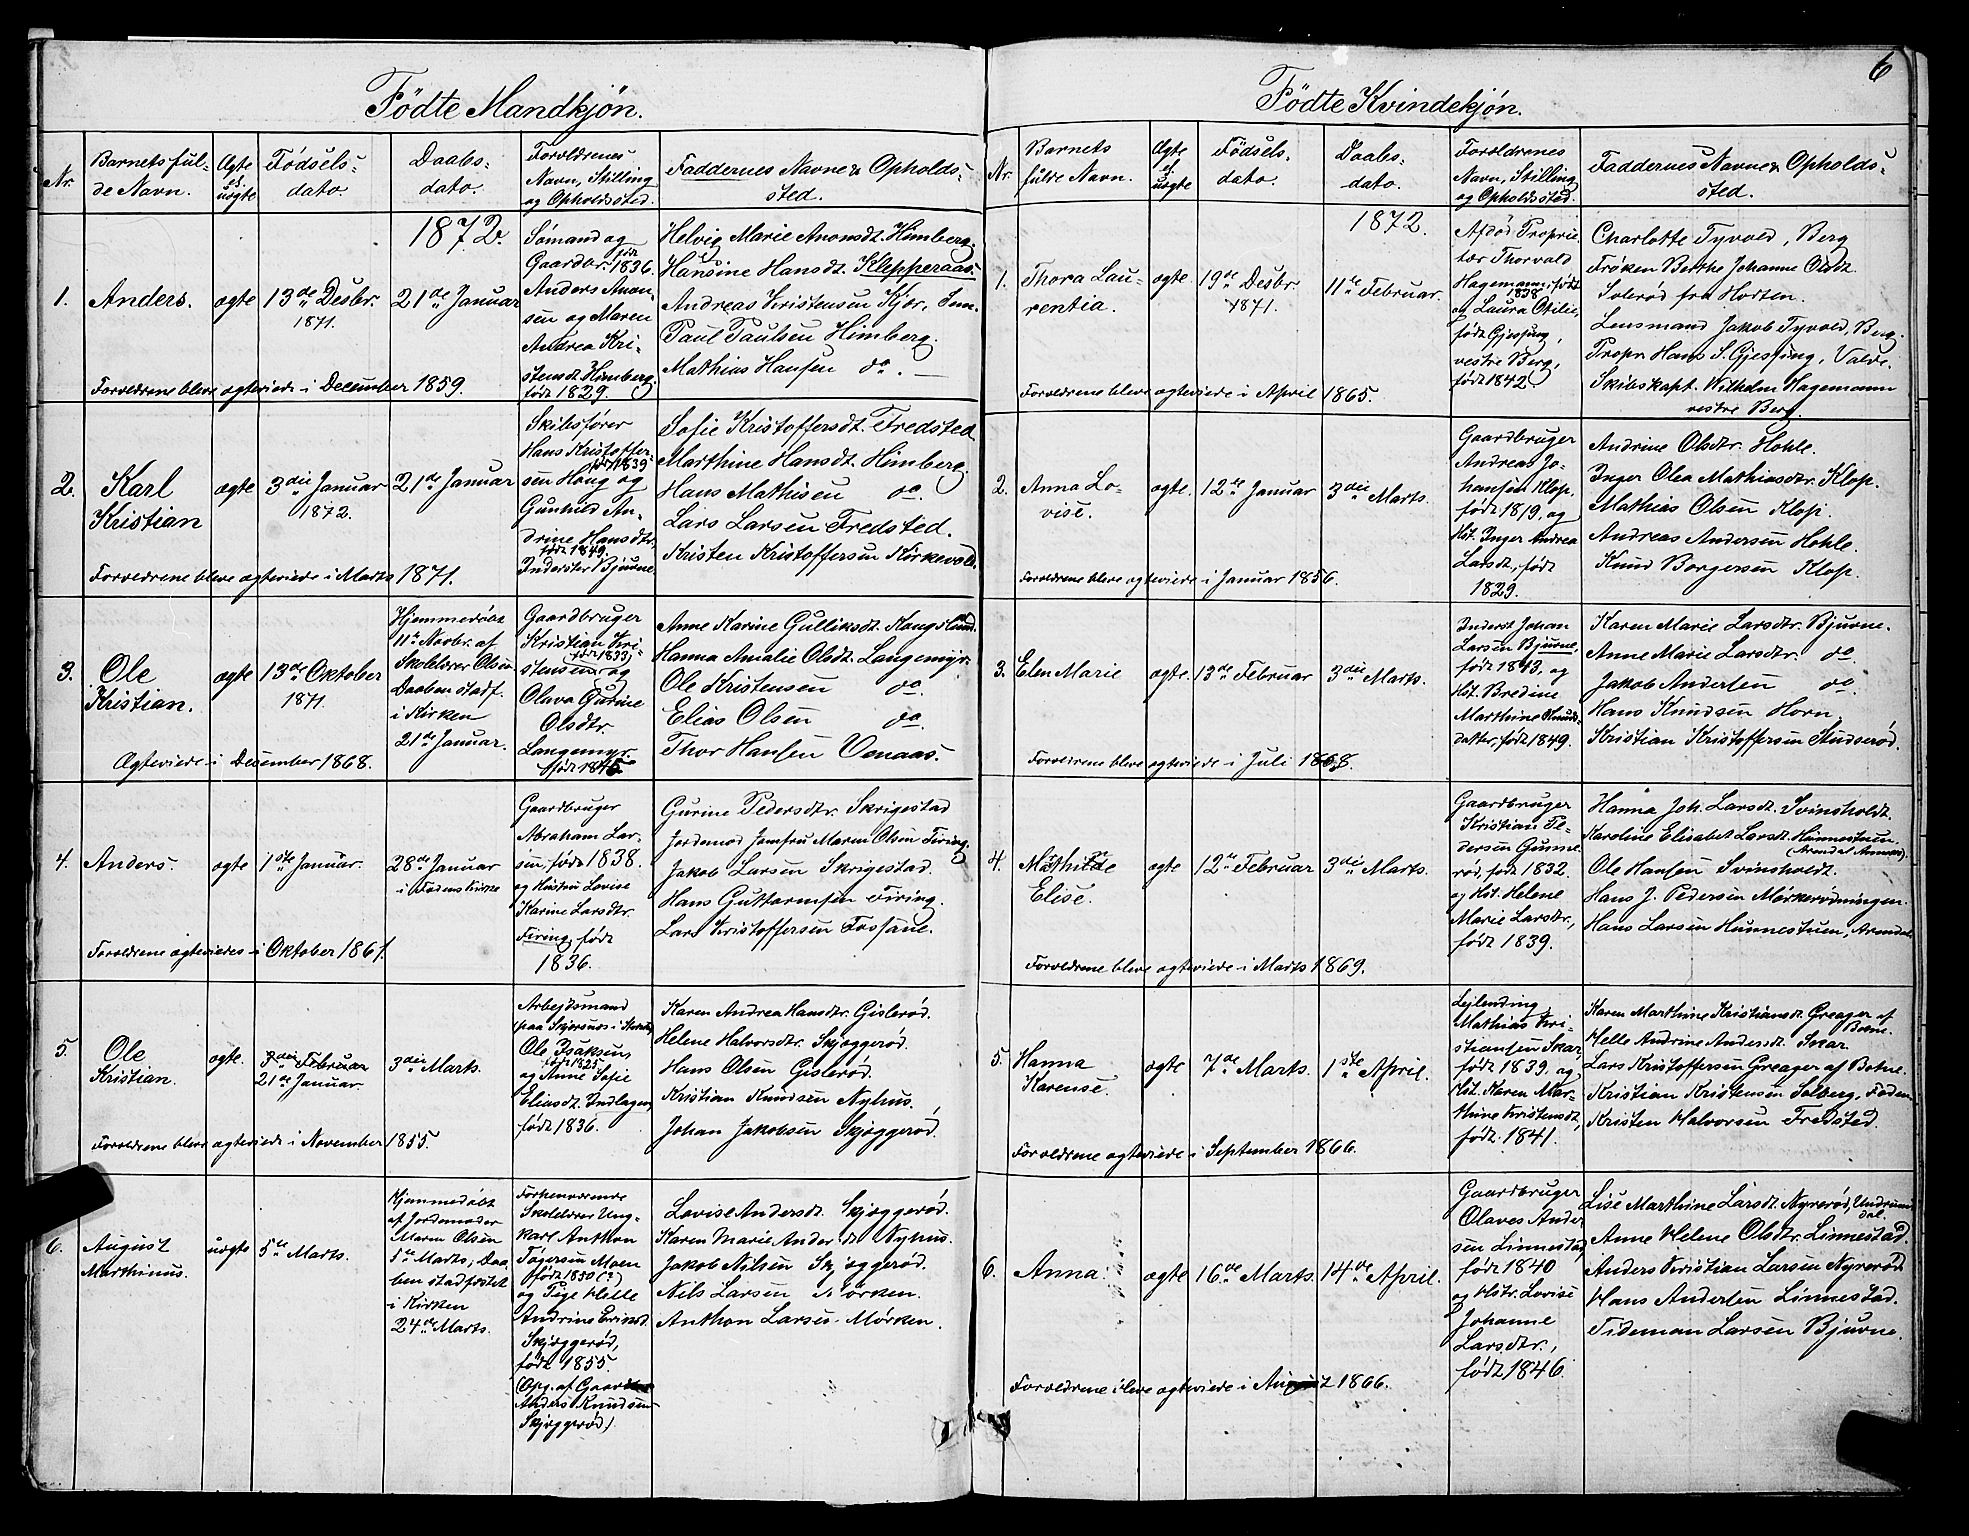 6
Fødte Mandkjøn.
Nr.
Barnets ful-
de Navn.
Ægte
el.
uægte
Fødsels-
dato
Daabs-
dato.
Forældrenes
Navn, Stilling
og Opholdssted.
Faddernes Navne & Opholds-
sted.
1872.
1.
Anders.
ægte
13de Desbr.
1871.
21de Januar
Sømand og
Gaardbr. født 1836.
Anders Anon-
sen og Maren
Andrea Kri-
stensdt. Himberg,
født 1829.
Helvig Marie Anonsdt. Himberg.
Hansine Hansdt. Klepperaas.
Andreas Kristensen Kjær, Sem.
Paul Paulsen Himberg.
Mathias Hansen do.
Forældrene bleve ægteviede i December 1859.
2.
Karl
Kristian
ægte
3die Januar
1872.
21de Januar
Skibsfører
Hans Kristoffer-
født 1839
sen Haug og
Gunhild An-
drine Hansdtr.
født 1849.
Inderster Bjuune.
Sofie Kristoffersdt. Fredsted
Marthine Hansdt. Himberg.
Hans Mathisen do.
Lars Larsen Fredsted.
Kristen Kristoffersen Kirkevold.
Forældrene bleve ægteviede i Marts 1871.
3.
Ole
Kristian.
ægte
13de Oktober
1871.
Hjemmedøbt
11te Novbr. af
Skolelærer Olsen
Daaben stadf.
i Kirken
21de Januar.
Gaardbruger
Kristian Kri-
født 1833
stensen og
Olava Gurine
Olsdtr.
Langemyr.
født 1845
Anne Karine Gulliksdt. Haugslund.
Hanna Amalie Olsdt. Langemyr.
Ole Kristensen do
Elias Olsen do
Thor Hansen Venaas.
Ægteviede i December 1868.
4.
Anders.
ægte
1ste Januar.
28de Januar
i Fodens Kirke
Gaardbruger
Abraham Lar-
sen, født 1838.
og Hustru Lovise
Karine Larsdtr.
Firing, født
1836.
Gurine Pedersdtr. Skrigestad
Jordemod. Jomfru Maren Olsen Firing.
Jakob Larsen Skrigestad.
Hans Guttormsen Firing.
Lars Kristoffersen Fossane.
Forældrene ægteviedes i Oktober 1861.
5.
Ole
Kristian.
ægte.
3die Februar
21de Januar.
3die Marts.
Arbejdsmand
Ole Isaksen,
født 1825
og Anne Sofie
Eliasdt. Indlagen,
født 1836.
Karen Andrea Hansdtr. Gislerød.
Helene Halvorsdtr. Skjæggerød.
Hans Olsen Gislerød.
Kristian Knudsen Nyhus.
Johan Jakobsen Skjæggerød.
Forældrene bleve ægteviede i November 1855.
6.
August
Marthinus.
uægte
5te Marts.
Hjemmedøbt
af Jordemoder
Maren Olsen
5te Marts; Daa-
ben stadfæstet
i Kirken
24de Marts.
Forhenværende
Skolelærer Ung-
karl Anthon
Tøgersen Moen
født 1850 (?)
og Pige Helle
Andrine Eriksd.
Skjæggerød,
født 1855.
(Opg. af Gaardbr.
Anders Knudsen
Skjæggerød)
Lovise Andersdt. Skjæggerød.
Karen Marie Andersdt. Nyhus.
Jakob Nilsen Skjæggerød.
Nils Larsen Mørken.
Anthon Larsen Mørken.
Fødte Kvindekjøn.
Nr.
Barnets
fulde Navn.
Ægte
el.
uægte
Fødsels-
dato.
Daabs-
dato.
Forældrenes
Navn, Stilling
og Opholdssted.
Faddernes Navne & Opholds-
sted.
1872.
1.
Thora Lau-
rentia.
ægte.
19de Desbr.
1871.
11te Februar.
Afdød Proprie-
tær Thorvald
Hagemann, født
1838
og Laura Otilie,
født Gjessing,
vestre Berg,
født 1842
Charlotte Tyvold, Berg
Frøken Berthe Johanne Olsdt.
Solerød fra Horten.
Lensmand Jakob Tyvold, Berg.
Propr. Hans S. Gjessing, Valdr.
Skibskapt. Wilhelm Hagemann
vestre Berg.
Forældrene bleve ægteviede i April 1865.
2.
Anna Lo-
vise.
ægte.
12te Januar
3die Marts.
Gaardbruger
Andreas Jo-
hansen Klop,
født 1819, og
Hst. Inger Andrea
Larsdt., født
1829.
Andrine Olsdtr. Hohle.
Inger Olea Mathiasdtr. Klop.
Mathias Olsen Klop.
Andreas Andersen Hohle.
Knud Borgersen Klop.
Forældrene bleve ægteviede i Januar 1856.
3.
Elen Marie
ægte.
13de Februar
3die Marts.
Inderst Johan
Larsen Bjuune,
født 1843, og
Hst. Bredine
Marthine Knuds-
datter, født 1849.
Karen Marie Larsdtr. Bjuune.
Anne Marie Larsdtr. do.
Jakob Andersen do.
Hans Knudsen Horn.
Kristian Kristoffersen Hudserød.
Forældrene bleve ægteviede i Juli 1868.
4.
Mathilde
Elise.
ægte
12te Februar
3die Marts.
Gaardbruger
Kristian Pe-
dersen Gunne-
rød, født 1832.
og Hst. Helene
Marie Larsdtr.,
født 1839.
Hanna Joh. Larsdt. Svinsholdt.
Karoline Elisabet Larsdt. Hunnestuen
Ole Hansen Svinsholdt.
Hans J. Pedersen Mørkerødningen.
Hans Larsen Hunnestuen, Arendal.
Forældrene bleve ægteviede i Marts 1869.
5.
Hanna
Karense.
ægte
7de Marts.
1ste April.
Lejlending
Mathias Kri-
stiansen Skar
født 1839. og
Hst. Karen Mar-
thine Kristensdt,
født 1841.
Karen Marthine Kristiansdt. Greager af
Botne.
Helle Andrine Andersdt. Skar.
Lars Kristoffersen Greager af Botne.
Kristian Kristensen Solberg, Foden.
Kristen Halvorsen Fredsted.
Forældrene ægteviede i September 1866.
6.
Anna.
ægte
16de Marts.
14de April.
Gaardbruger
Olaves Ander-
sen Linnestad,
født 1840
og Hstr. Lovise
Johanne
Larsdtr.,
født 1846.
Lise Marthine Larsdt. Nyrerød, Undrums-
dal.
Anne Helene Olsdtr. Linnestad.
Anders Kristian Larsen Nyrerød
Hans Andersen Linnestad.
Tideman Larsen Bjuune.
Forældrene bleve ægteviede i August 1866.